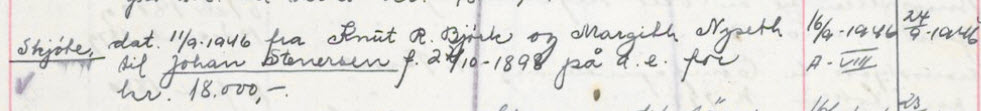 Skjöte, dat. 11/9-1946 fra Knut R. Björk og Margith Nyseth 16/9-1946 24/9-1946
til Johan Stenersen f. 24/10-1898 på d.e. for A-VIII
kr. 18.000,-.